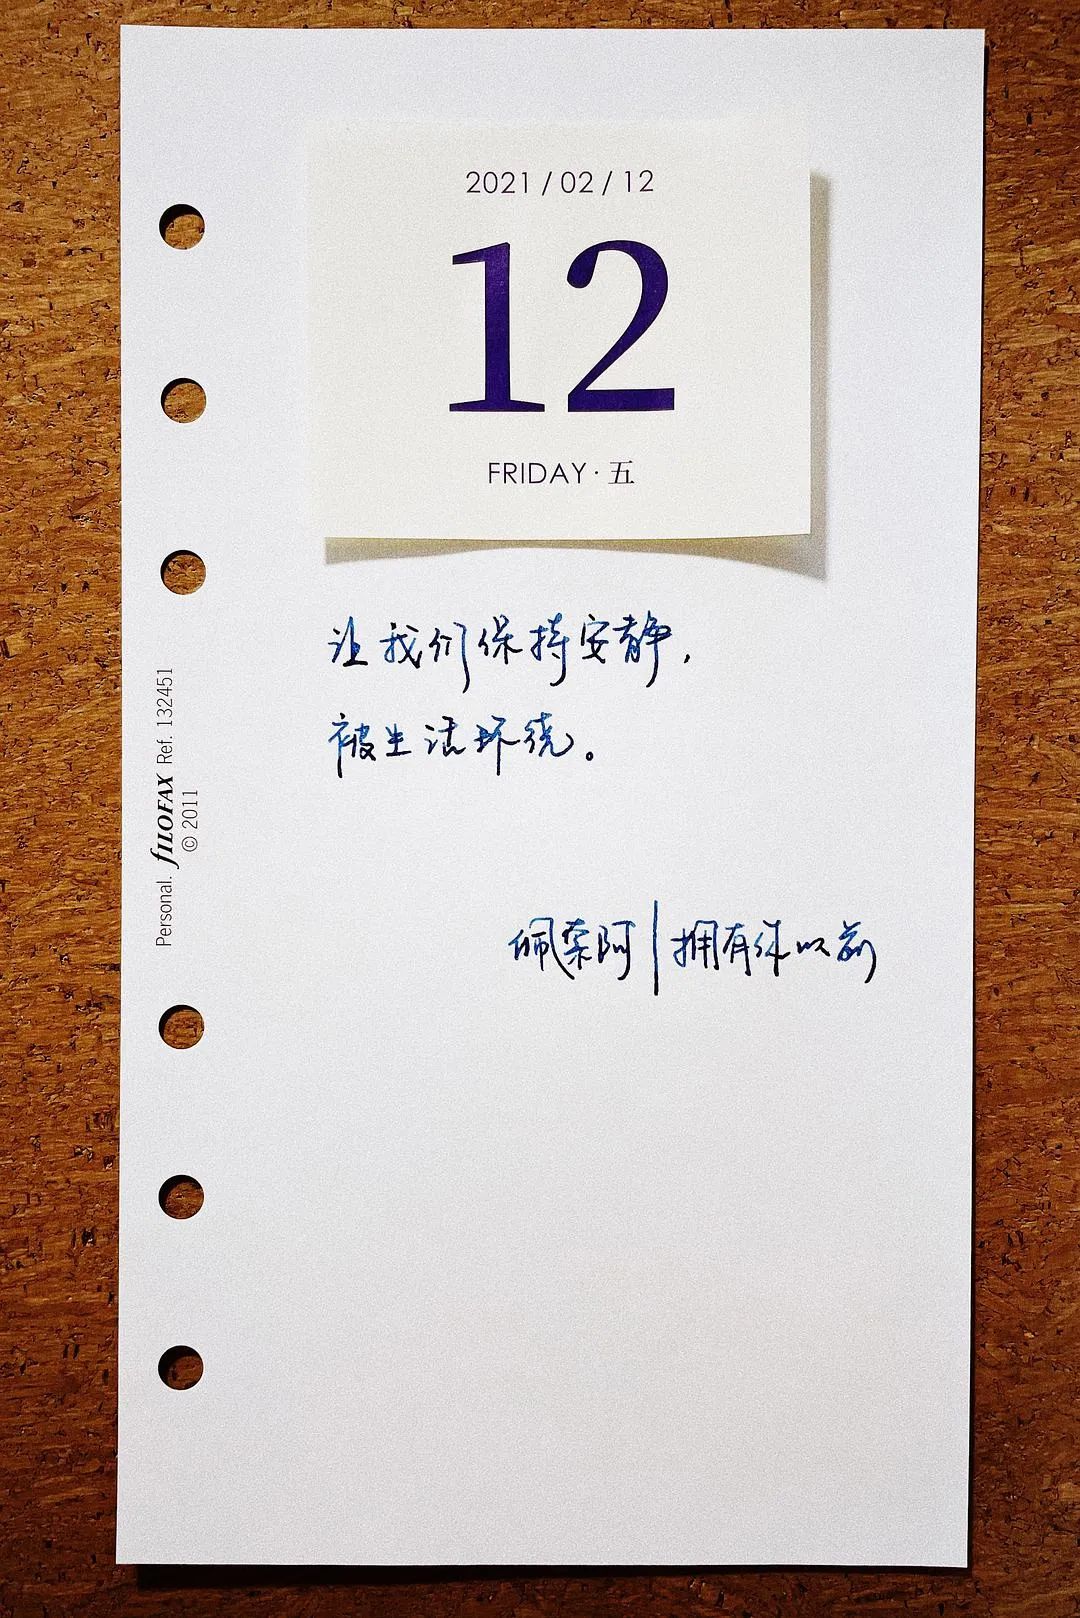 2021 / 02 / 12
12
FRIDAY · 五
让我们保持安静，
被生活环绕。
佩索阿｜拥有你以前
Personal. fILOFAX Ref. 132451
© 2011